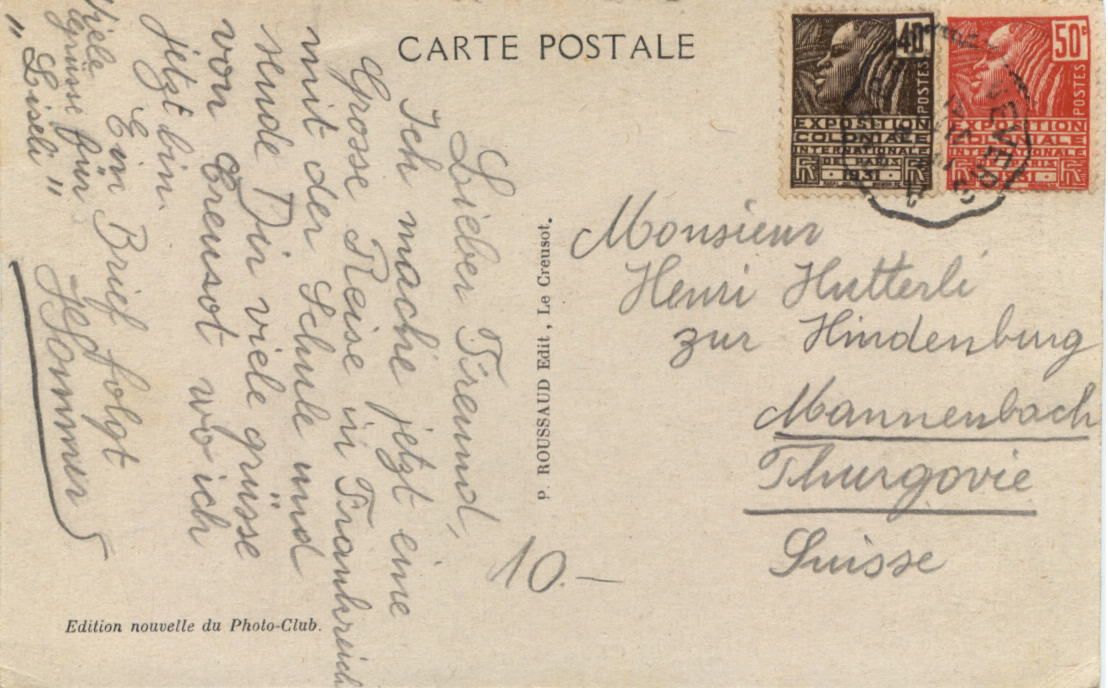 CARTE POSTALE
40c
POSTES
EXPOSITION
COLONIALE
INTERNATIONALE
DE PARIS
1931
50c
POSTES
EXPOSITION
COLONIALE
INTERNATIONALE
DE PARIS
1931
Lieber Freund,
Ich mache jetzt eine
Grosse Reise in Frankreich
mit der Schule und
sende Dir viele grüsse
von Creusot wo ich
jetzt bin.
Ein Brief folgt
Sommer
Viele
grüsse für
"Liseli"
P. ROUSSAUD Edit, Le Creusot.
Monsieur
Henri Hutterli
zur Hindenburg
Mannenbach
Thurgovie
Suisse
10.—
Edition nouvelle du Photo-Club.